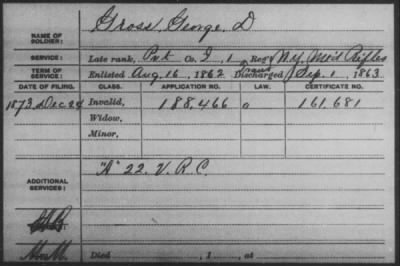 NAME OF SOLDIER: Gross, George, D
SERVICE: Late rank, Pvt Co. I, 1 Reg't N.Y. Mt'd Rifles
TERM OF SERVICE: Enlisted Aug. 16, 1862 Trans Discharged Sep. 1, 1863
DATE OF FILING. CLASS. APPLICATION NO. LAW. CERTIFICATE NO.
1873 Dec 24 Invalid, 188,466 161,681
Widow,
Minor,
ADDITIONAL SERVICES: "A" 22. V. R. C.
Died , 1 , at